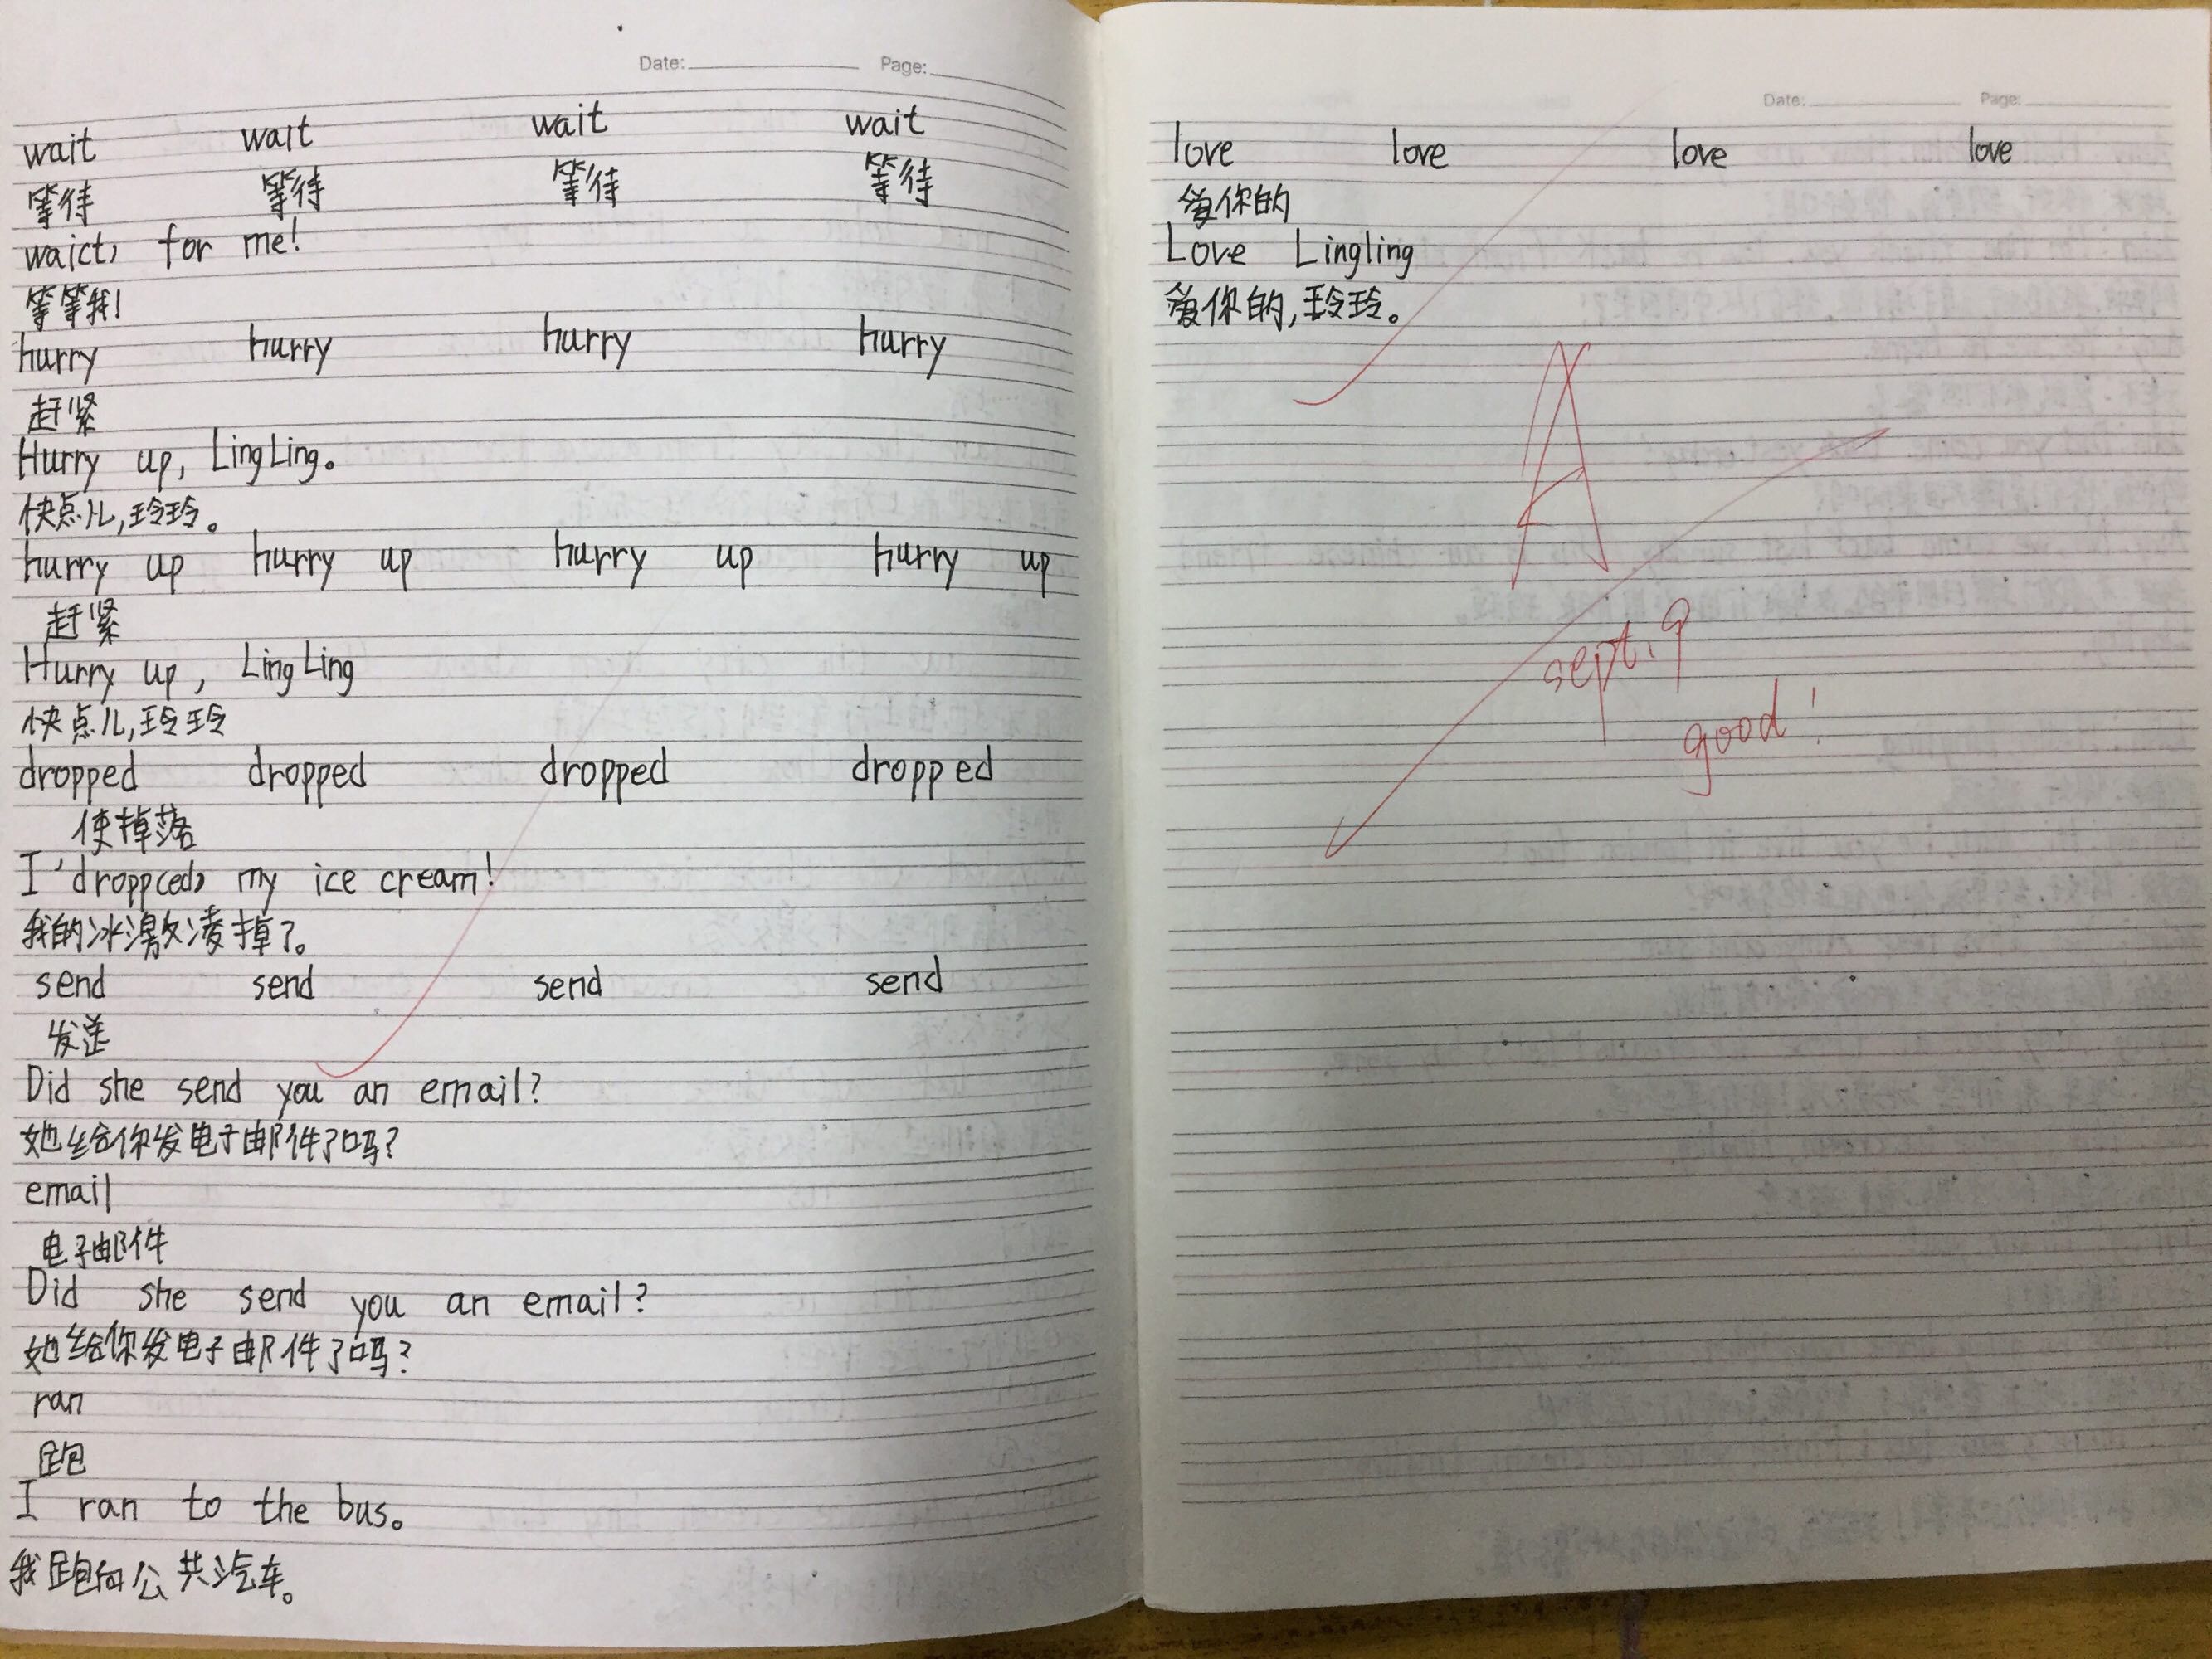 Date: Page:
wait wait wait wait
等待 等待 等待 等待
wai(t) for me!
等等我!
hurry hurry hurry hurry
赶紧
Hurry up, LingLing。
快点儿,玲玲。
hurry up hurry up hurry up hurry up
赶紧
Hurry up, LingLing
快点儿,玲玲
dropped dropped dropped dropped
使掉落
I 'dropp(ed) my ice cream!
我的冰激凌掉了。
send send send send
发送
Did she send you an email?
她给你发电子邮件了吗?
email
电子邮件
Did she send you an email?
她给你发电子邮件了吗?
ran
跑
I ran to the bus。
我跑向公共汽车。
Date: Page:
love love love love
爱你的
Love Lingling
爱你的,玲玲。
A
sept.9
good!